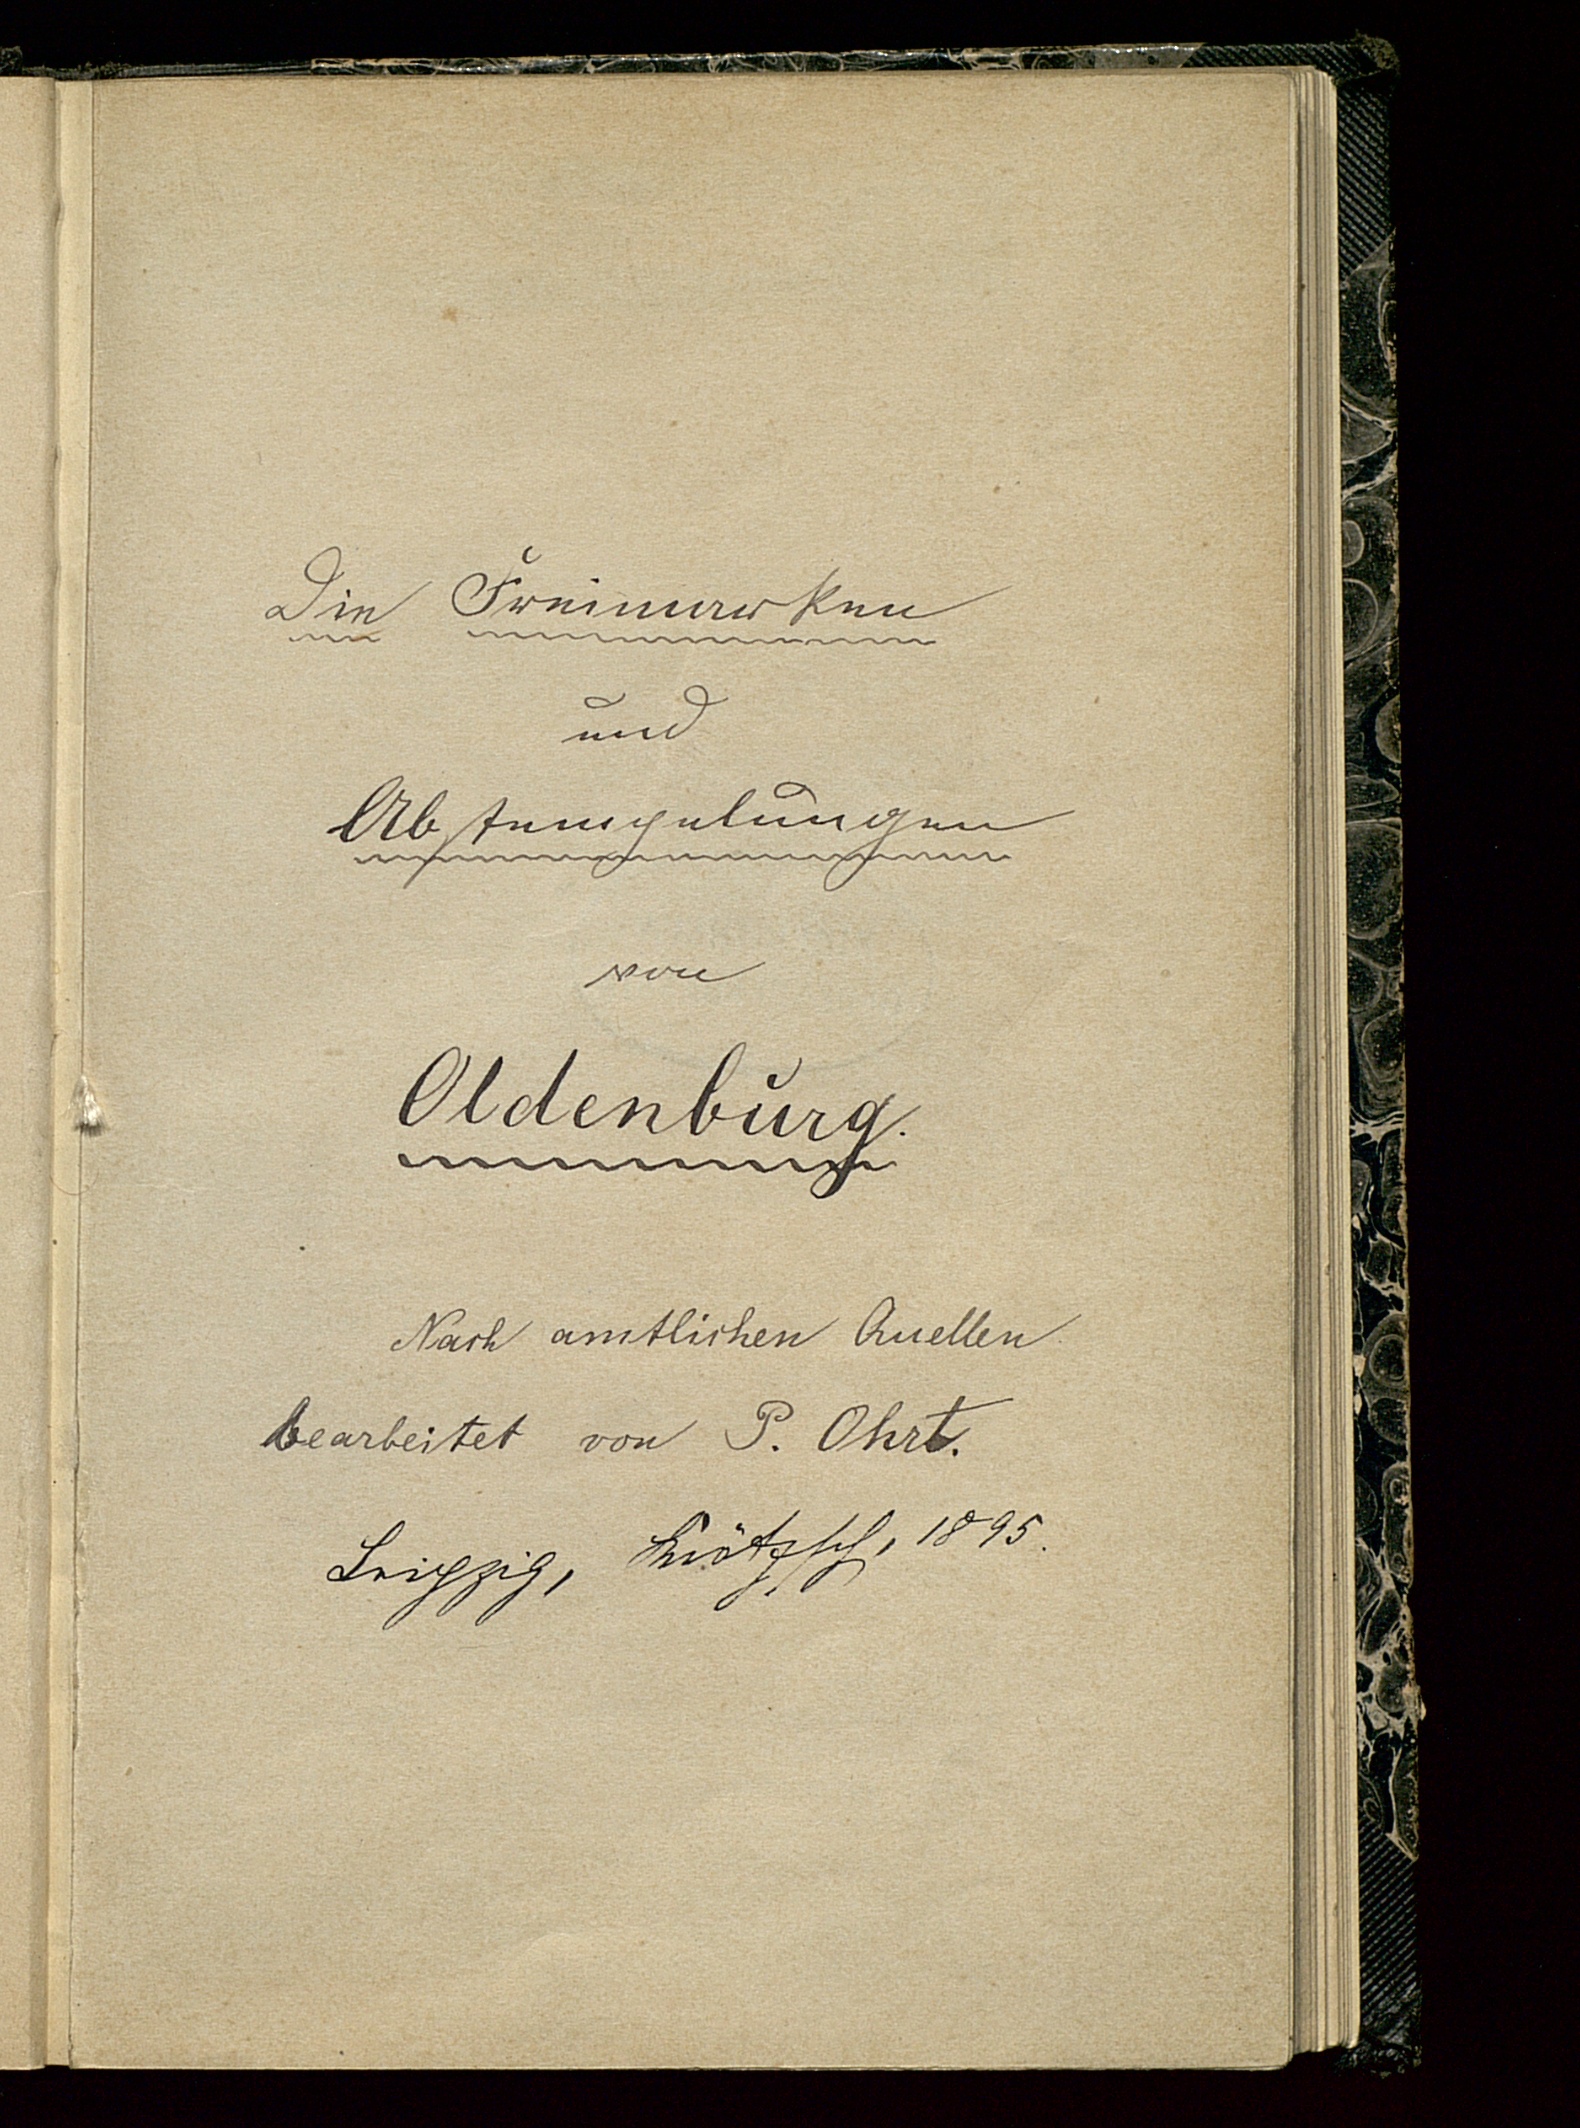 Die Freimarken
und
Abstempelungen
von
Oldenburg.
Nach amtlichen Quellen
bearbeitet von P. Ohrt.
Leipzig, Krötzsch, 1895.